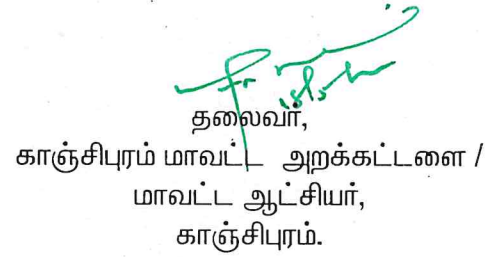 தலைவர்,
காஞ்சிபுரம் மாவட்ட அறக்கட்டளை /
மாவட்ட ஆட்சியர்,
காஞ்சிபுரம்.